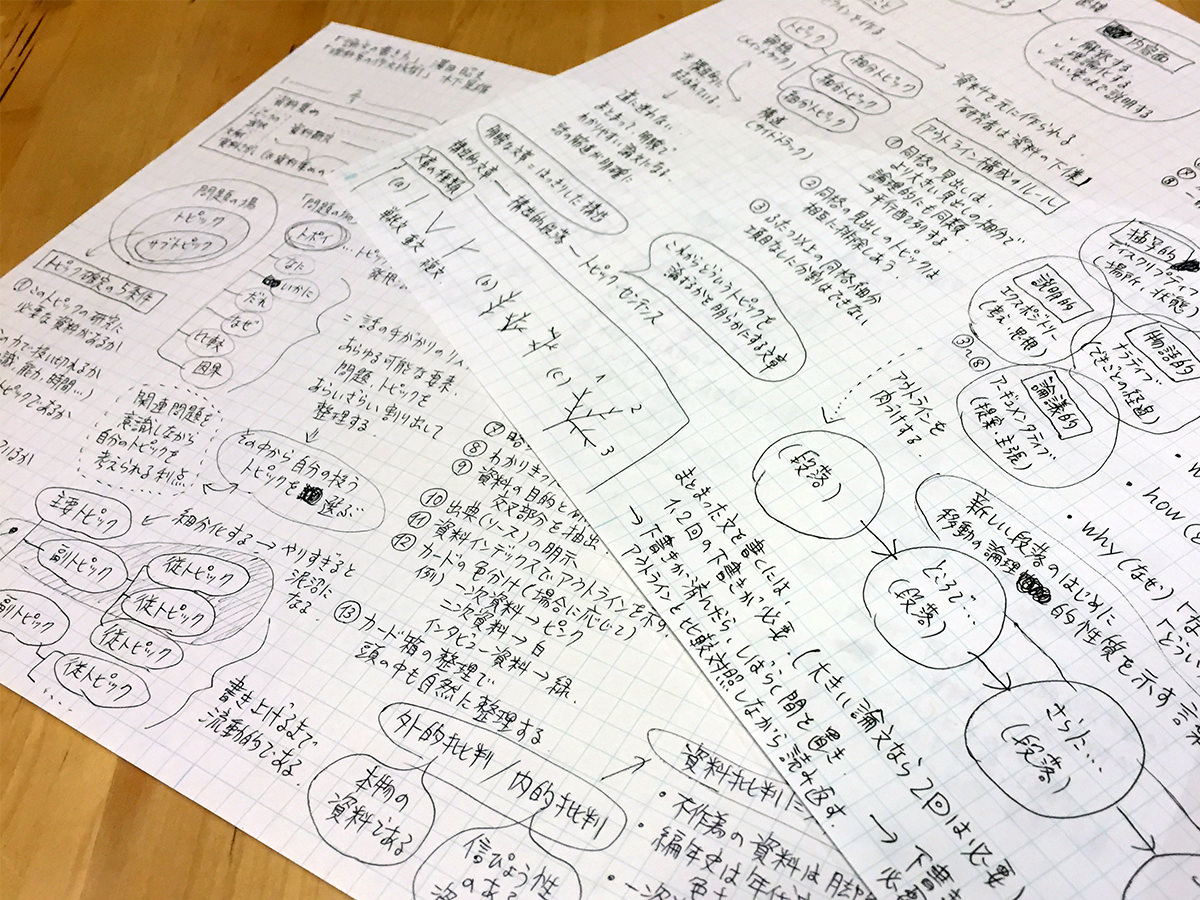 「論文の書き方」 澤田昭夫
「理科系の作文技術」 木下是雄
問題の場
トピック
サブトピック
トピック確定の5条件
①このトピックの研究に
必要な資料があるか
トポイ
なに
いかに
だれ
なぜ
比較
因果
= 話の手がかりの
あらゆる可能な要素、
問題・トピックを
おらいざらい割り出して
整理する
関連問題を
意識しながら
自分のトピックを
考えられる利点
その中から自分の扱う
トピックを
選ぶ
主トピック
副トピック
副トピック
従トピック
従トピック
従トピック
従トピック
細分化する → やりすぎると
泥沼に
なる
書き上げるまで
流動的である
⑧ わかりきった
⑨ 資料の目的と
交叉部分を抽出
⑩ 出典(ソース)の明示
⑪ 資料インデックスでアウトラインを示す
⑫ カードの色分け(場合に応じて)
例) 一次資料 → ピンク
二次資料 → 白
インタビュー資料 → 緑
⑬ カード箱の整理で
頭の中も自然に整理する
外的批判/内的批判
本物の
資料である
信ぴょう性
のある
資料批判
・不作為の資料は
編年史は年代
・一次
文章の種類
(a)
単文 重文 複文
(b)
(c)
1
2
3
明晰な文章=はっきりした構造
構造的文章 — 構造的段落 — トピック・センテンス
これからどういうトピックを
論ずるかを明らかにする文章
道に迷わない
まとまって明晰で
わかりやすい論文になる
話の筋道が明瞭に
トピック
細分トピック
細分トピック
細分トピック
資料を元に作られる
「研究者は資料の下僕」
アウトライン構成のルール
①同格の見出しは、
より大きい見出しの細分で
論理的にも同類
→ 平行配列する
②同格の見出しのトピックは
相互に排除しあう
③ふたつ以上の同格細分
項目なしに分割はできない
内容面
解釈する
理論化する
広い意味で説明する
描写的
ディスクリプティブ
(場所・状態)
説明的
エクスポジトリー
(考え・思想)
物語的
ナラティブ
(できごとの経過)
論議的
アーギュメンタティブ
(提案・主張)
③〜⑧
アウトラインを
肉づけする
(段落)
ところで…
(段落)
さらに…
(段落)
新しい段落のはじめに
移動の論理
的性質を示す
・how
・why(なぜ)
まとまった文を書くには、
1,2回の下書きが必要。(大きい論文なら2回は必要)
→ 下書きが済んだら、しばらく間を置き、
アウトラインと比較対照しながら読み返す。